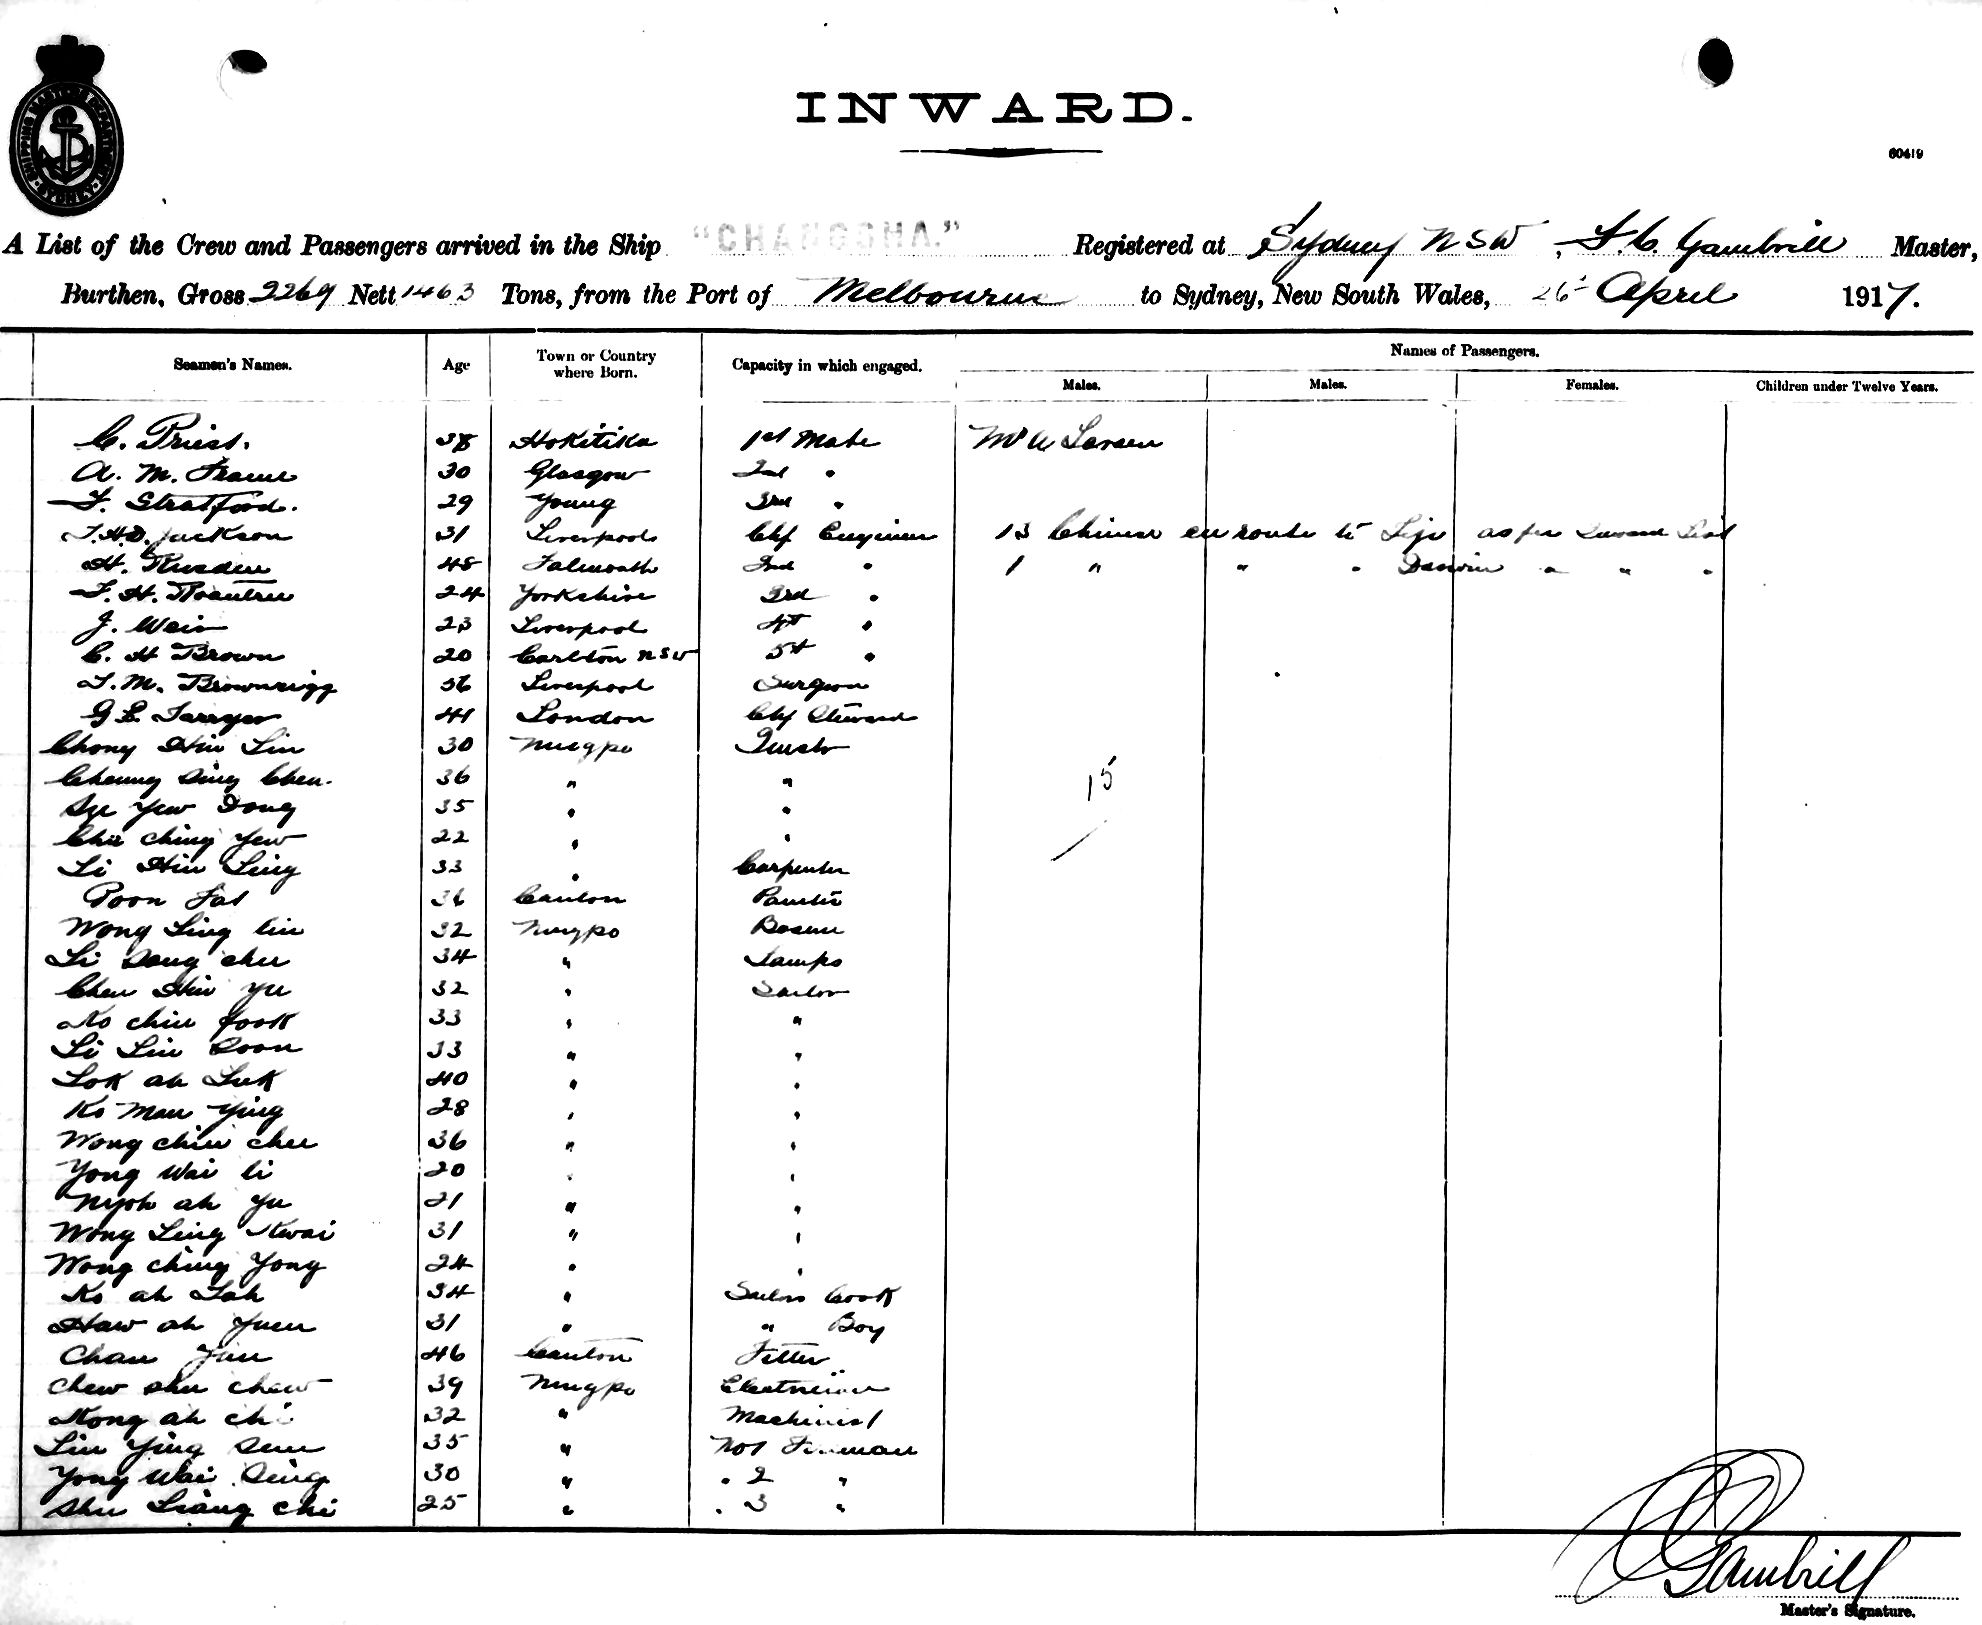 SHIPPING MASTER'S DEPARTMENT SYDNEY
INWARD.
60419
A List of the Crew and Passengers arrived in the Ship "CHANGSHA." Registered at Sydney NSW, F. C. Gambrill Master,
Burthen, Gross 2269 Nett 1463 Tons, from the Port of Melbourne to Sydney, New South Wales, 26 April 1917.
Seamen's Names. Age Town or Country where Born. Capacity in which engaged. Names of Passengers.
Males. Males. Females. Children under Twelve Years.
C. Priest. 38 Hokitika 1st Mate Mr A Larsen
A. M. Frame 30 Glasgow 2nd "
F. Stratford. 29 Young 3rd "
T. H. D. Jackson 31 Liverpool Chf Engineer 13 Chinese en route to Fiji as per Inward List
H. Rusden 48 Falmouth 2nd " 1 " " " Darwin " " "
F. H. Roantree 24 Yorkshire 3rd "
J. Weir 23 Liverpool 4th "
C. H Brown 20 Carlton NSW 5th "
T. M. Brownrigg 56 Liverpool Surgeon
G L Farryer 41 London Chf Steward
Chong Hin Lin 30 Ningpo
Cheung Sing Chen. 36 " "
Sze Yew Dong 35 " "
Chu Ching Yew 22 " "
15
Li Hin Ling 33 " Carpenter
Poon Fat 36 Canton Painter
Wong Ling Lin 32 Ningpo Bosun
Li Dong Chu 34 " Lamps
Chen Hin Yu 32 " Sailor
Ko Chin Fook 33 " "
Li Lin Soon 33 " "
Lok Ah Luk 40 " "
Ko Man Ying 28 " "
Wong Chin Chu 36 " "
Yong Wai Li 20 " "
Nyoh Ah Yu 21 " "
Wong Ling Kwai 31 " "
Wong Ching Yong 24 " "
Ko Ah Lah 34 " Sailors Cook
Haw Ah Yuen 31 " " Boy
Chan Yun 46 Canton Fitter
Chew Shu Chew 39 Ningpo Electrician
Kong Ah Chi 32 " Machinist
Lin Ying Sun 35 " No1 Fireman
Yong Wai Sing 30 " " 2 "
Shu Liang Chi 25 " " 3 "
Gambrill
Master's Signature.